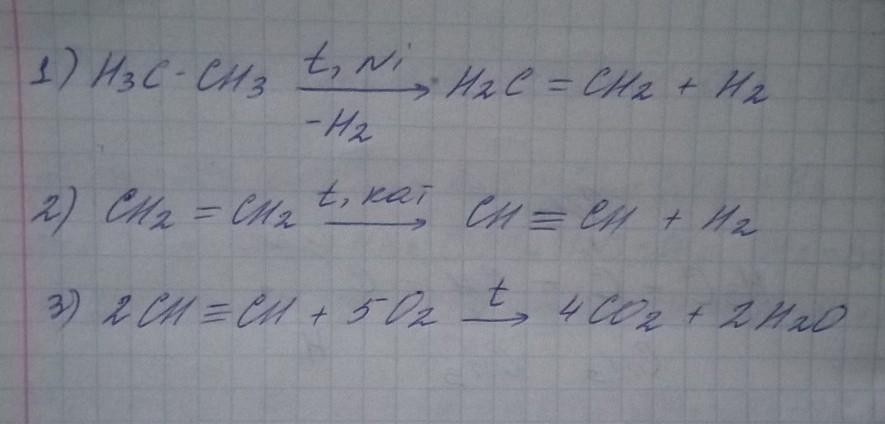 1) H₃C - CH₃ t, Ni → -H₂ H₂C = CH₂ + H₂
2) CH₂ = CH₂ t, кат → CH ≡ CH + H₂
3) 2CH ≡ CH + 5O₂ t → 4CO₂ + 2H₂O